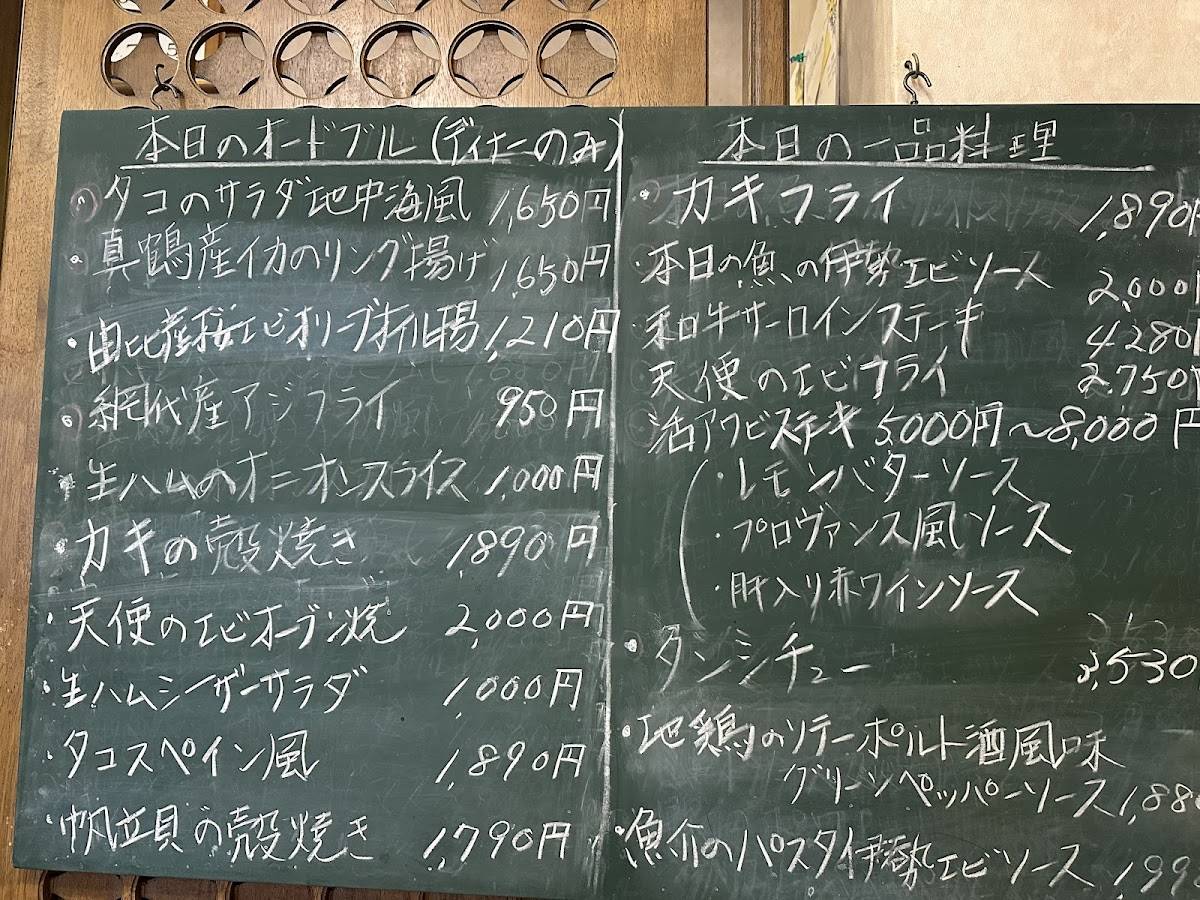 本日のオードブル(ディナーのみ)
・タコのサラダ地中海風 1,650円
・真鶴産イカのリング揚げ 1,650円
・由比産桜エビオリーブオイル揚 1,210円
・網代産アジフライ 950円
・生ハムのオニオンスライス 1,000円
・カキの殻焼き 1,890円
・天使のエビオーブン焼 2,000円
・生ハムシーザーサラダ 1,000円
・タコスペイン風 1,890円
・帆立貝の殻焼き 1,790円
本日の一品料理
・カキフライ 1,890円
・本日の魚の伊勢エビソース 2,000
和牛サーロインステーキ 4280円
天使のエビフライ 2.750円
活アワビステーキ 5000円〜8,000円
・レモンバターソース
・プロヴァンス風ソース
・肝入り赤ワインソース
・タンシチュー 3,530
・地鶏のソテーポルト酒風味
グリーンペッパーソース 1,88
・魚介のパスタ伊勢エビソース 1,99